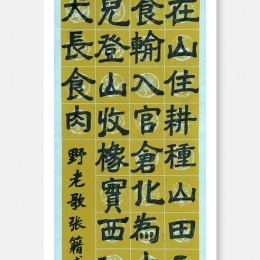 在山住耕種山田
食輸入官倉化為
兒登山收橡實西
犬長食肉
野老歌張籍